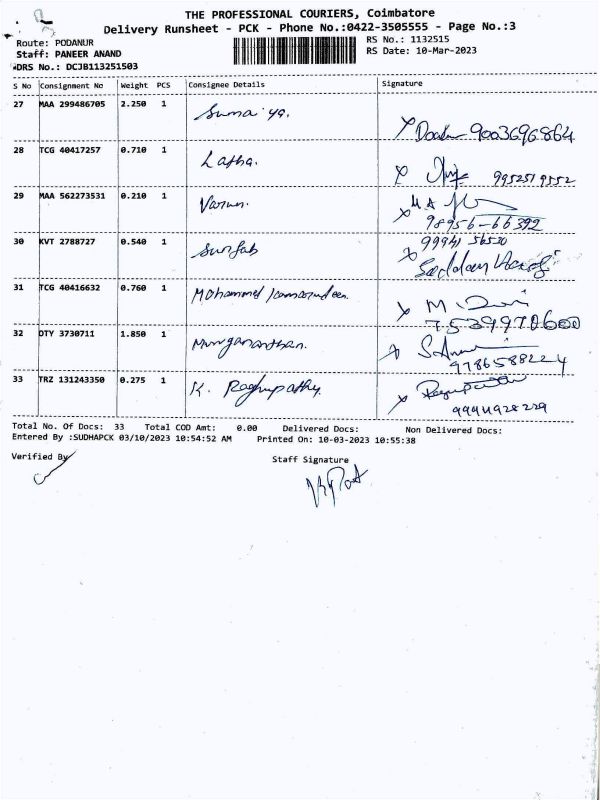 THE PROFESSIONAL COURIERS, Coimbatore
Delivery Runsheet - PCK - Phone No.:0422-3505555 - Page No.:3
Route: PODANUR
RS No.: 1132515
Staff: PANEER ANAND
RS Date: 10-Mar-2023
DRS No.: DCJB113251503
S No Consignment No Weight PCS Consignee Details Signature
27 MAA 299486705 2.250 1 Suma ya.
9003696864
28 TCG 40417257 0.710 1 Latha.
9952519552
29 MAA 562273531 0.210 1 Varun.
98956-66392
30 KVT 2788727 0.540 1
99941 56530
31 TCG 40416632 0.760 1 Mohammed
7539970600
32 DTY 3730711 1.850 1
9786588224
33 TRZ 131243350 0.275 1 K. Raghupathy.
9994928229
Total No. Of Docs: 33 Total COD Amt: 0.00 Delivered Docs: Non Delivered Docs:
Entered By :SUDHAPCK 03/10/2023 10:54:52 AM Printed On: 10-03-2023 10:55:38
Verified By
Staff Signature